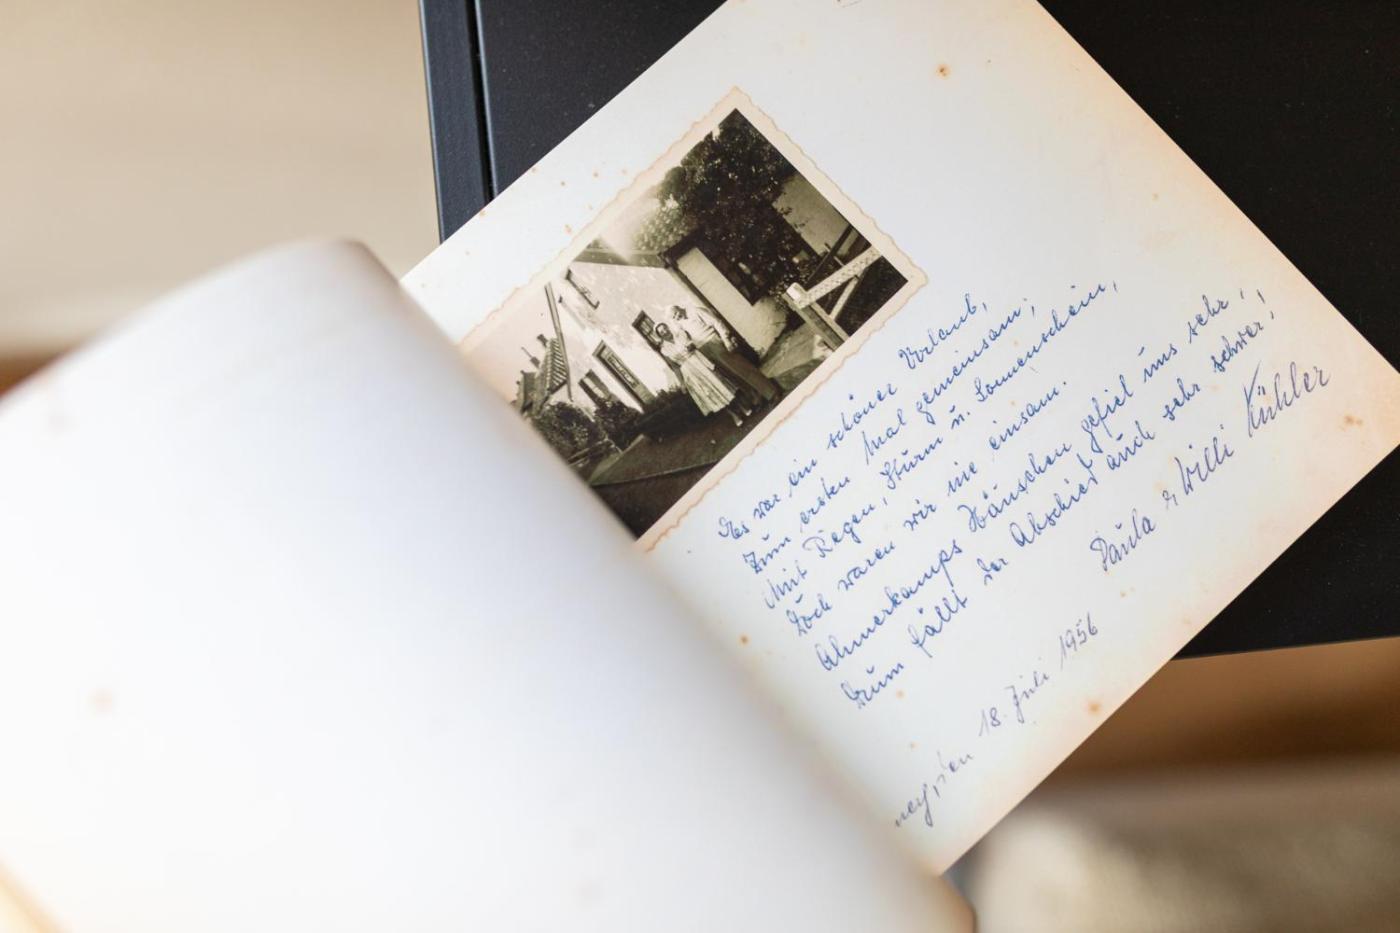 Es war ein schöner Urlaub,
Zum ersten Mal gemeinsam;
Mit Regen, Sturm u. Sonnenschein,
Doch waren wir nie einsam.
Ahmerkamps Häuschen gefiel uns sehr,
Drum fällt der Abschied auch sehr schwer,
Paula & Willi Kühler
ney, den 18. Juli 1956